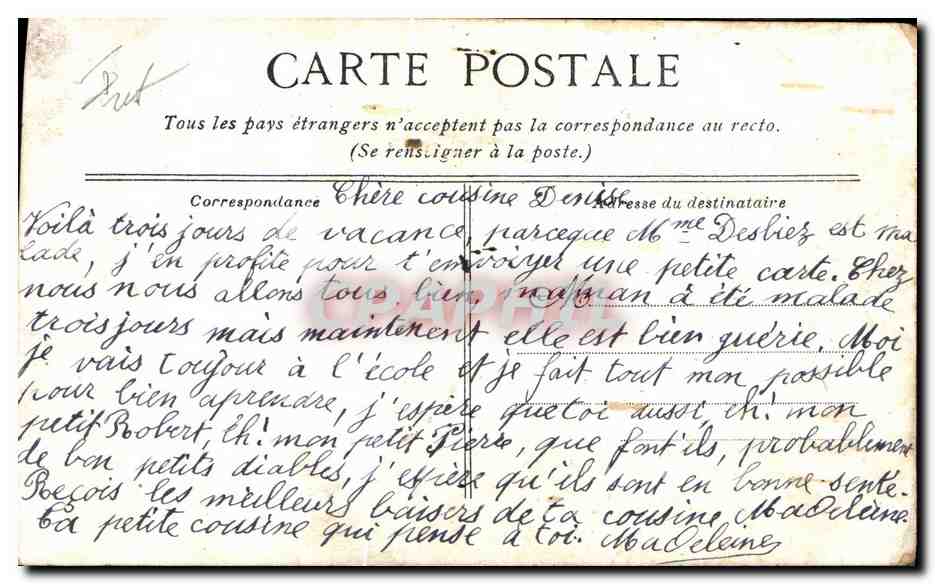 CARTE POSTALE
Tous les pays étrangers n'acceptent pas la correspondance au recto.
(Se renseigner à la poste.)
Correspondance Chère cousine Denise Adresse du destinataire
Voilà trois jours de vacance, parceque Mme Desbiez est ma
lade, j'en profite pour t'envoiyer une petite carte. Chez
nous nous allons tous bien, maman à été malade
trois jours mais maintenent elle est bien guérie. Moi
je vais toujour à l'école et je fait tout mon possible
pour bien aprendre, j'espère que toi aussi, eh! mon
petit Robert, éh! mon petit Pierre, que font'ils, probablement
de bon petits diables, j'espère qu'ils sont en bonne senté.
Reçois les meilleurs baisers de ta cousine Madeleine.
ta petite cousine qui pense à toi. Madeleine